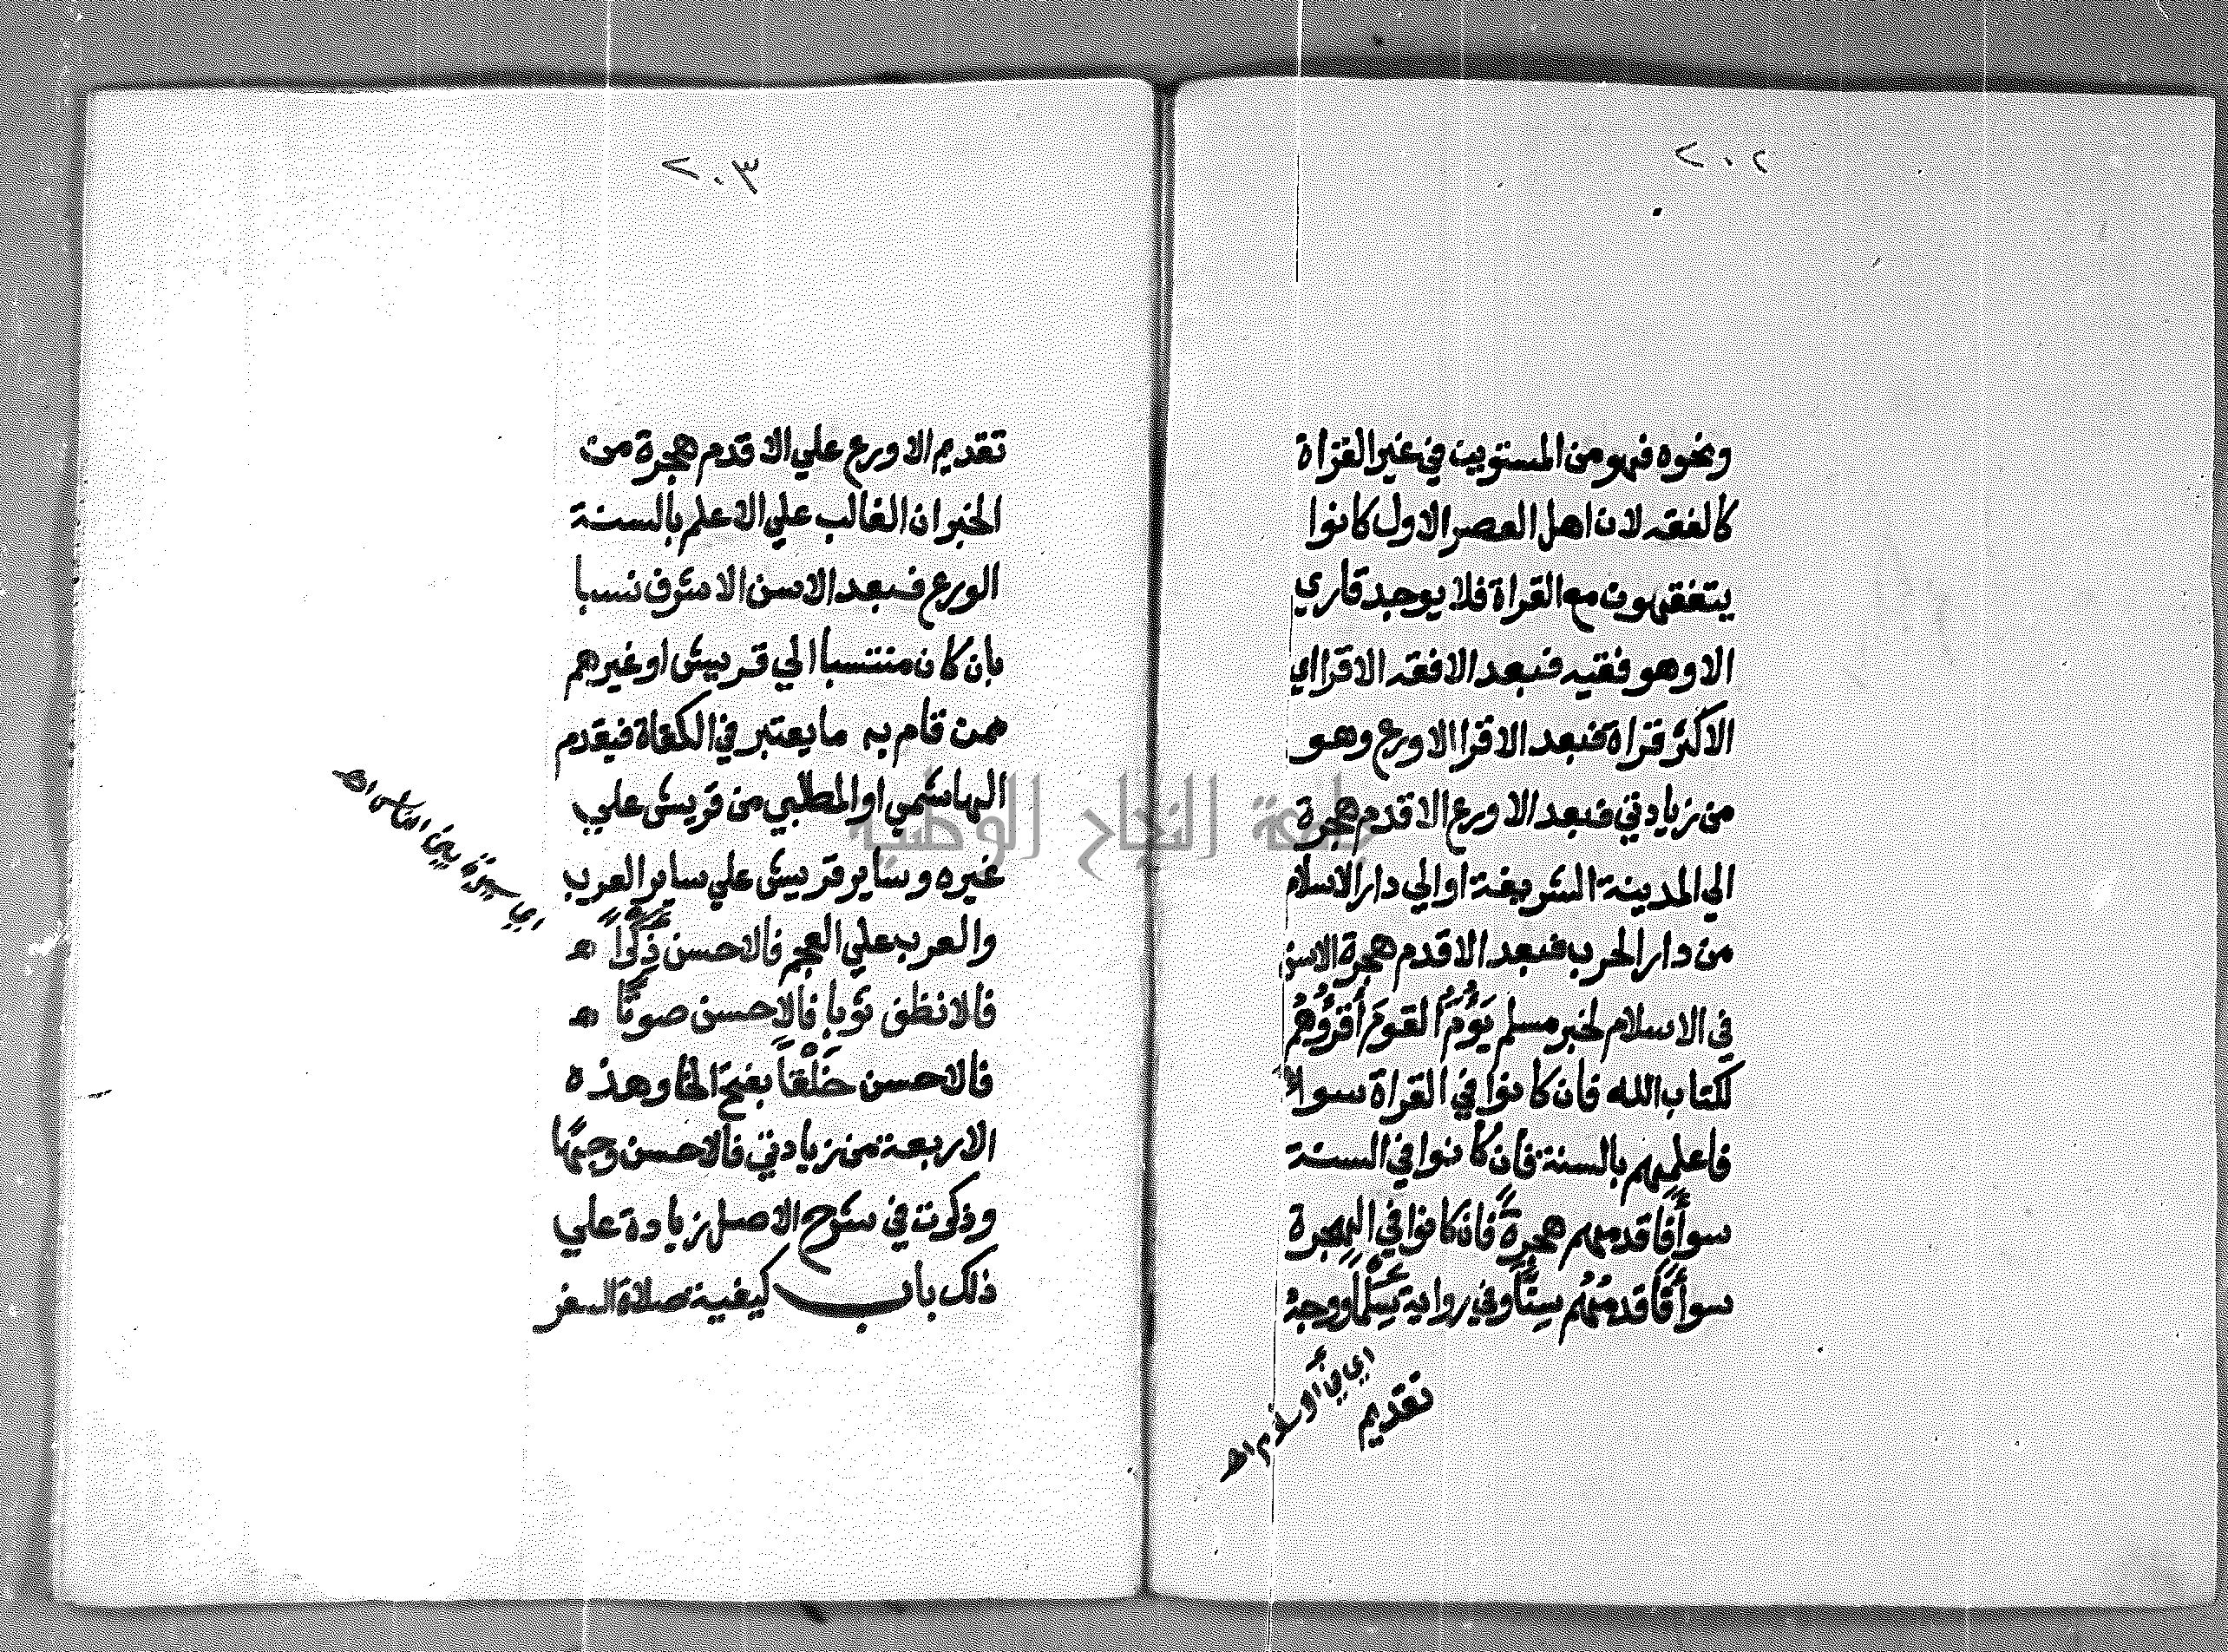 ٢٠٧
ونحوه فهو من المستويين في غير القراة
كالفقه لان اهل العصر الاول كانوا
يتفقهون مع القراة فلا يوجد قاري
الا وهو فقيه فبعد الافقه الاقرا اي
الاكثر قراة فبعد الاقرا الاورع وهو
من زيادتي فبعد الاورع الاقدم هجرة
الي المدينة الشريفة او الي دار الاسلام
من دار الحرب فبعد الاقدم هجرة الاسن
في الاسلام لخبر مسلم يَؤُمُّ القوم أقرؤُهُم
لكتاب الله فان كانوا في القراة سوا
فاعلمهم بالسنة فان كانوا في السنة
سوأ فاقدمهم هجرةً فان كانوا في الهجرة
سوأ فاقدمهُم سِنًّا وفي رواية سِلْمًا ووجهُ
تقديم
اي في الاسلام اهـ
٢٠٣
تقديم الاورع علي الاقدم هجرة من
الخبر ان الغالب علي الاعلم بالسنة
الورع فبعد الاسن الاشرف نسبا
بان كان منتسبا الي قريش او غيرهم
ممن قام به ما يعتبر في الكفاة فيقدم
الهاشمي او المطلبي من قريش علي
غيره وساير قريش علي ساير العرب
والعرب علي العجم فالاحسن ذِكْراً
فالانظف ثوبا فالاحسن صوتًا
فالاحسن خَلْقا بفتح الخا وهذه
الاربعة من زيادتي فالاحسن وجهًا
وذكرت في شرح الاصل زيادة علي
ذلك باب كيفية صلاة السفر
اي سيرة بين الناس اهـ
جامعة النجاح الوطنية